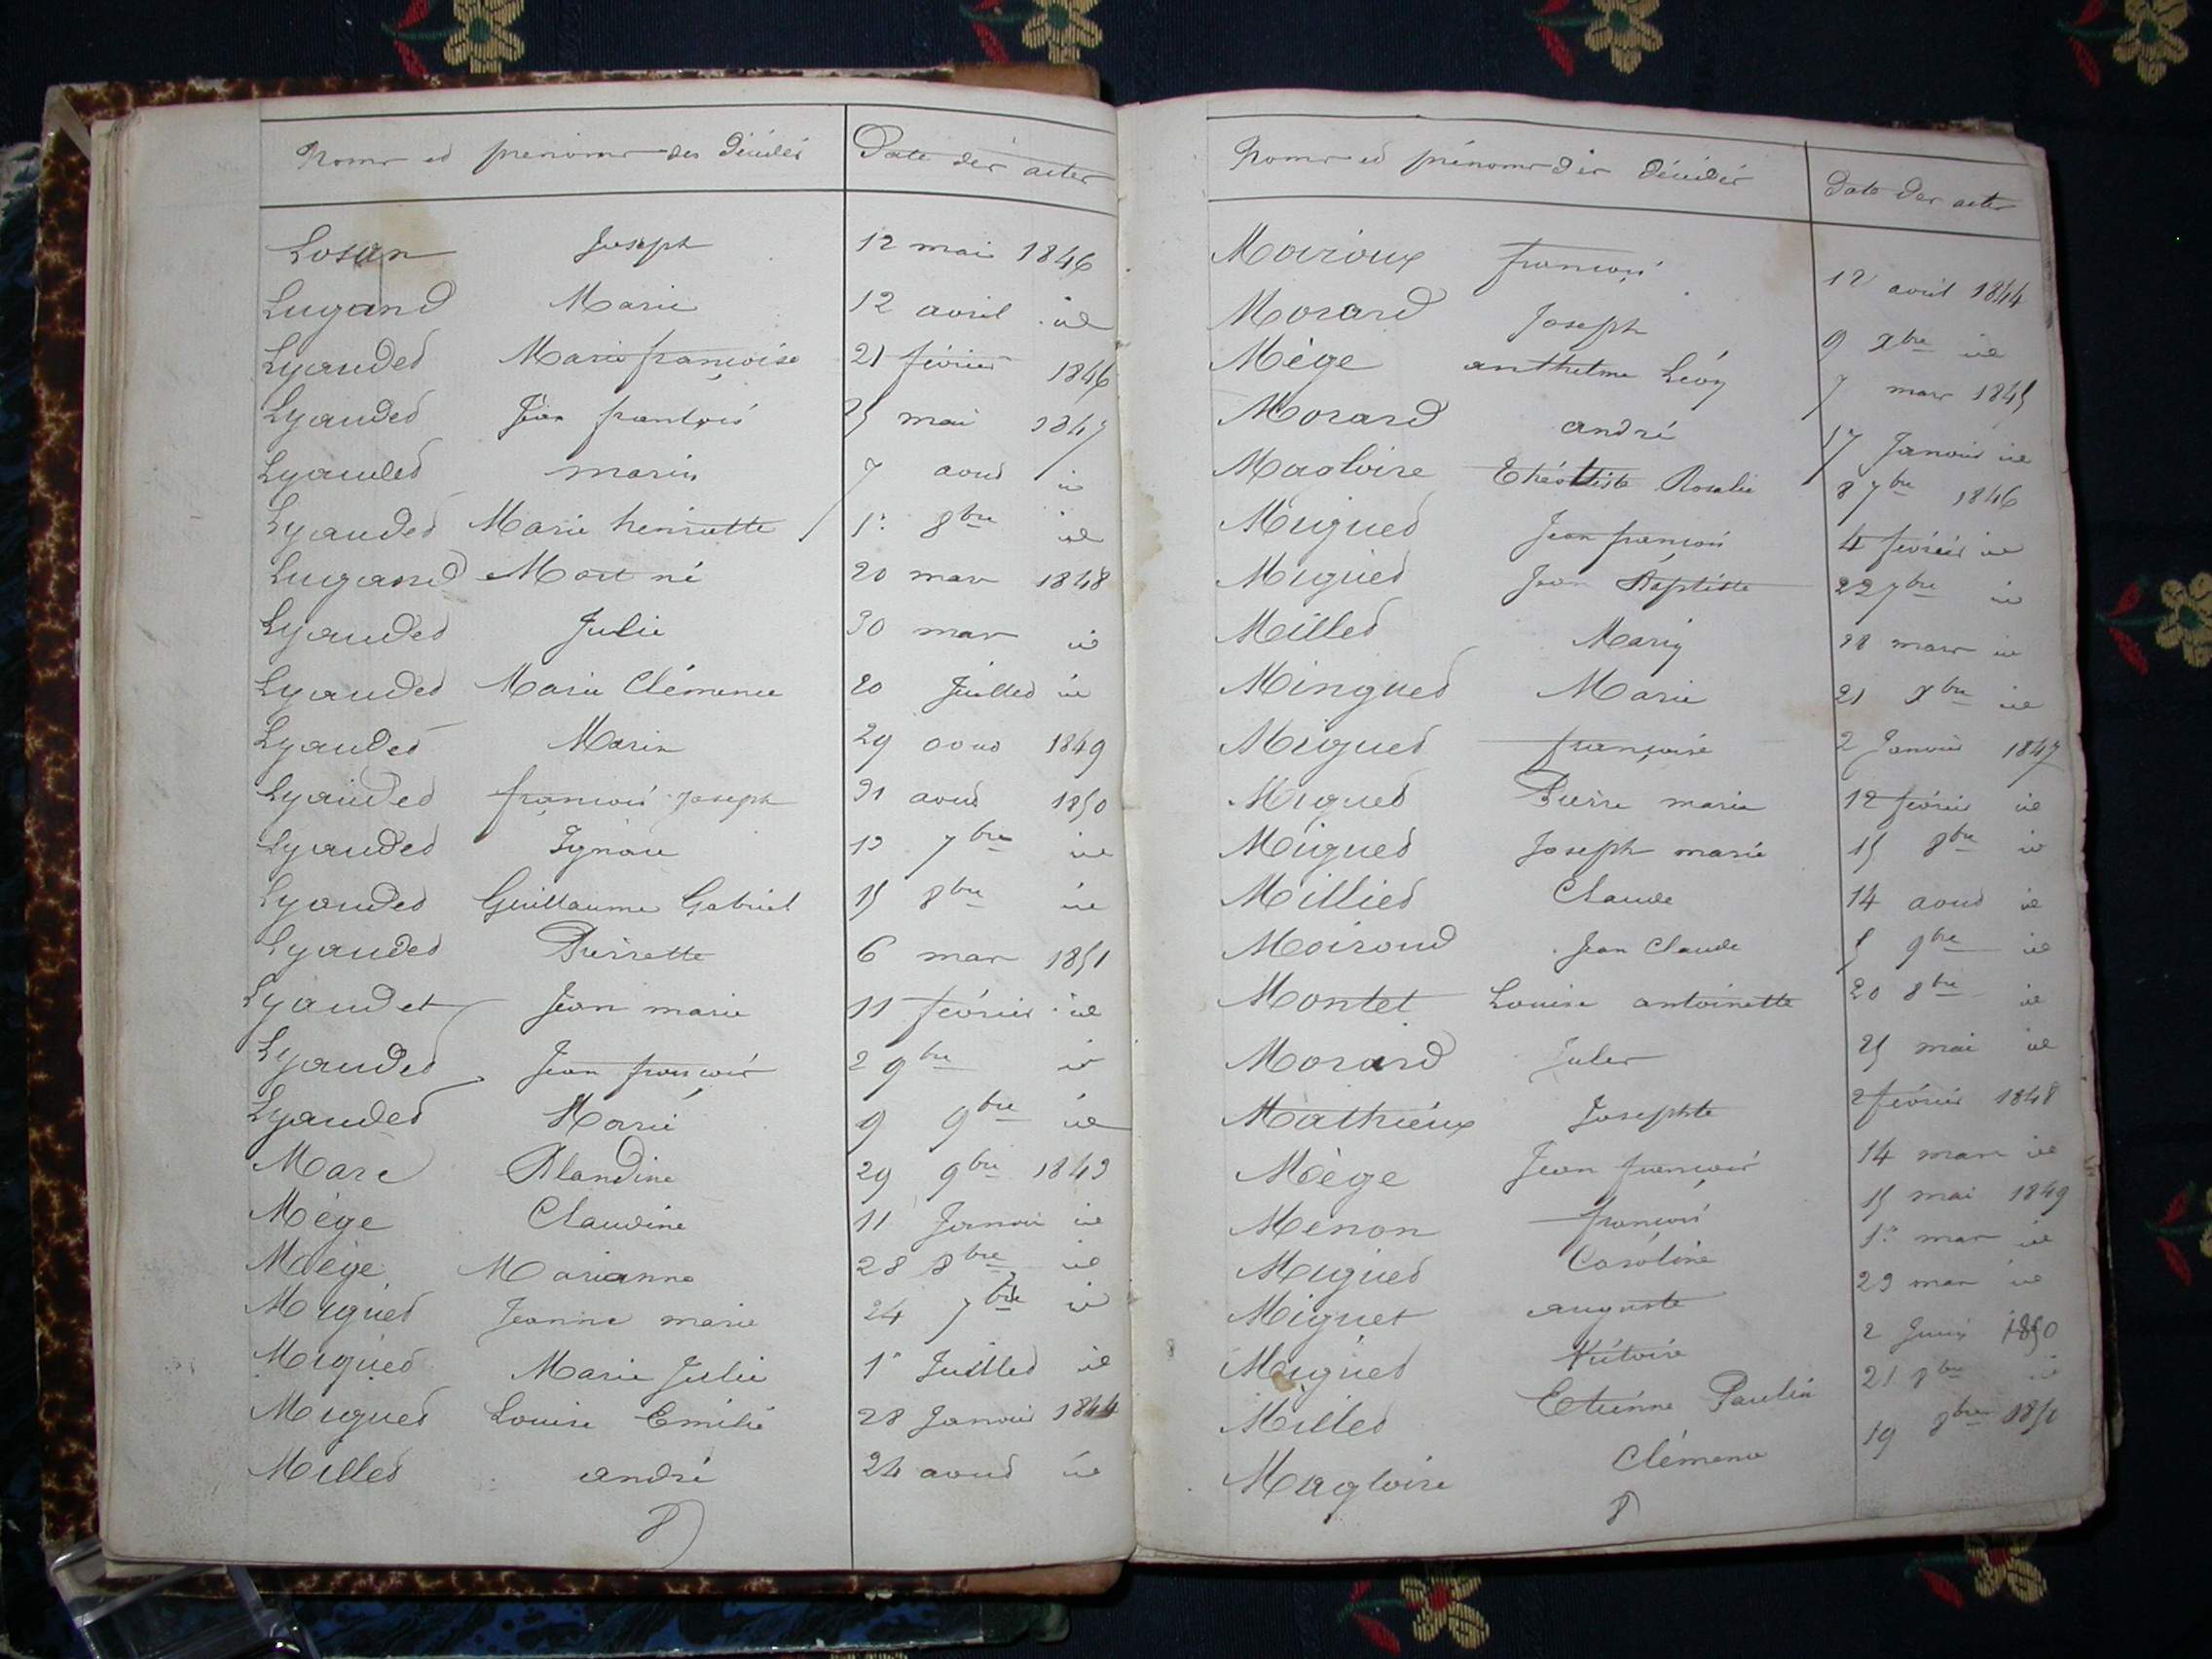 Noms et prénoms des décédés Date des actes
Losan Joseph 12 mai 1846
Lugand Marie 12 avril id
Lyaudet Marie françoise 21 février 1846
Lyaudet Jean françois 25 mai 1847
Lyaudet marin 7 aout id
Lyaudet Marie henriette 1er 8bre id
Lugand Mort né 20 mars 1848
Lyaudet Julie 30 mars id
Lyaudet Marie Clémence 20 Juillet id
Lyaudet Marin 29 aout 1849
Lyaudet françois Joseph 31 aout 1850
Lyaudet Ignace 13 7bre id
Lyaudet Guillaume Gabriel 15 8bre id
Lyaudet Pierrette 6 mars 1851
Lyaudet Jean marie 11 février id
Lyaudet Jean françois 2 9bre id
Lyaudet Marie 9 9bre id
Marc Blandine 29 9bre 1843
Mège Claudine 11 Janvier id
Mège Marianne 28 8bre id
Miguet Jeanne marie 24 7bre id
Miguet Marie Julie 1er Juillet id
Miguet Louise Emélie 28 Janvier 1844
Millet andré 24 aout id
Noms et prénoms des décédés Date des actes
Moiroux françois 12 avril 1844
Morard Joseph 9 Xbre id
Mège anthelme Lévy 7 mars 1845
Morard andré 17 Janvier id
Magloire Théottiste Rosalie 8 7bre 1846
Miguet Jean françois 4 février id
Miguet Jean Baptiste 22 7bre id
Millet Marie 28 mars id
Minguet Marie 21 Xbre id
Miguet françoise 2 Janvier 1847
Miguet Pierre marie 12 février id
Miguet Joseph marie 15 8bre id
Milliet Claude 14 aout id
Moiroud Jean Claude 5 9bre id
Montet Louise antoinette 20 8bre id
Morard Jules 25 mai id
Mathieux Josephte 2 février 1848
Mège Jean françois 14 mars id
Menon françois 15 mai 1849
Miguet Caroline 1er mars id
Miguet auguste 23 mars id
Miguet Victoire 2 Juin 1850
Millet Etienne Paulin 21 8bre id
Magloire Clémence 19 8bre 1850